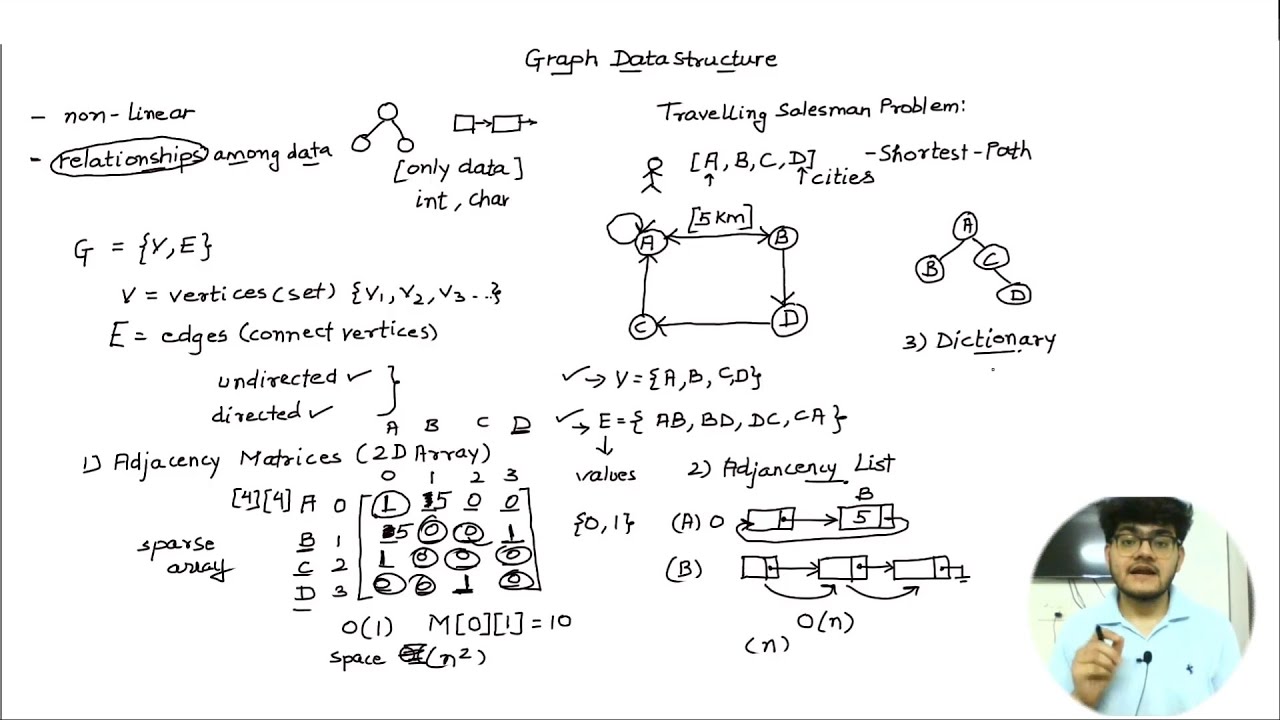 Graph Data structure
- non-linear
- relationships among data
[only data]
int, char
G = {V,E}
V = vertices(set) {V1, V2, V3 ...}
E = edges (connect vertices)
undirected ✓
directed ✓
Travelling Salesman Problem:
[A, B, C, D] - Shortest-Path
cities
[5 km]
A B
C D
A
B C
D
3) Dictionary
✓→ V = {A, B, C, D}
✓→ E = { AB, BD, DC, CA }
values
{0, 1}
1) Adjacency Matrices (2D Array)
A B C D
0 1 2 3
[4][4] A 0 1 5 0 0
B 1 5 0 0 1
C 2 1 0 0 0
D 3 0 0 1 0
sparse
array
O(1) M[0][1] = 10
space (n²)
2) Adjancency List
B
(A) 0 5
(B)
O(n)
(n)